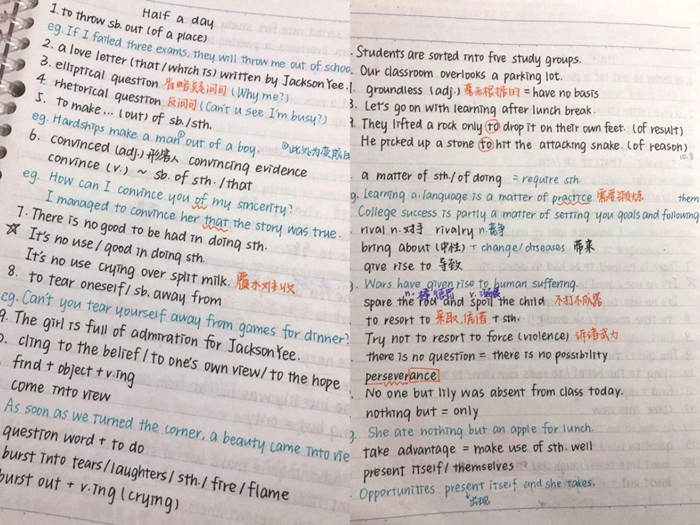 Half a day
1. to throw sb. out (of a place)
eg. If I failed three exams, they will throw me out of school
2. a love letter (that/which is) written by Jackson Yee.
3. elliptical question 省略疑问句 (Why me?)
4. rhetorical question 反问句 (Can't u see I'm busy?)
5. to make... (out) of sb./sth.
eg. Hardships make a man out of a boy.
6. convinced (adj.) 形容人 convincing evidence
convince (v.) ~ sb. of sth./that
eg. How can I convince you of my sincerity?
I managed to convince her that the story was true.
7. There is no good to be had in doing sth.
☆ It's no use/good in doing sth.
It's no use crying over split milk. 覆水难收
8. to tear oneself/sb. away from
eg. Can't you tear yourself away from games for dinner?
9. The girl is full of admiration for Jackson Yee.
cling to the belief/to one's own view/to the hope
find + object + v.ing
come into view
As soon as we turned the corner, a beauty came into vie
question word + to do
burst into tears/laughters/sth./fire/flame
burst out + v.ing (crying)
Students are sorted into five study groups.
Our classroom overlooks a parking lot.
groundless (adj.) 毫无根据的 = have no basis
3. Let's go on with learning after lunch break.
3. They lifted a rock only to drop it on their own feet. (of result)
He picked up a stone to hit the attacking snake. (of reason)
a matter of sth./of doing = require sth
g. Learning a language is a matter of practice 需要训练 them
College success is partly a matter of setting you goals and following
rival n. 对手 rivalry n. 竞争
bring about (中性) + change/diseases 带来
give rise to 导致
g. Wars have given rise to human suffering.
spare the rod and spoil the child 不打不成器
to resort to 采取, 诉诸 + sth.
Try not to resort to force (violence) 诉诸武力
there is no question = there is no possibility
perseverance
No one but lily was absent from class today.
nothing but = only
g. She are nothing but an apple for lunch.
take advantage = make use of sth. well
present itself/themselves
Opportunities present itself and she takes.
出现